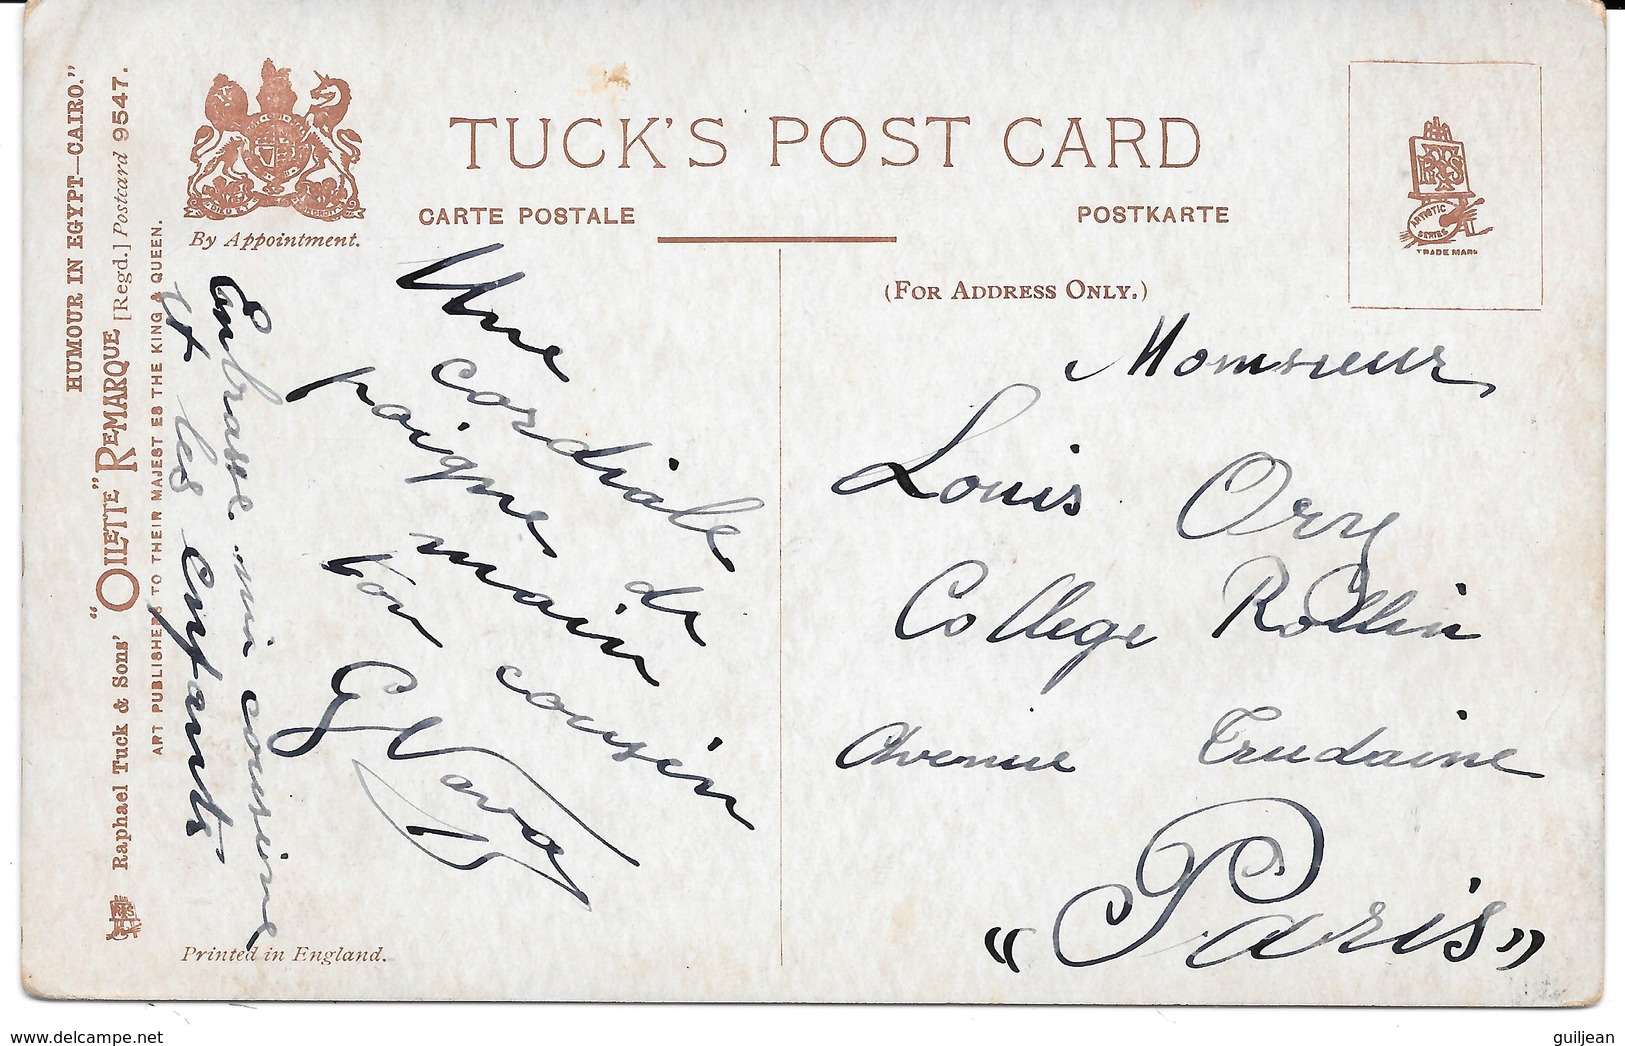 HUMOUR IN EGYPT—CAIRO."
Raphael Tuck & Sons' "OILETTE" REMARQUE [Regd.] Postcard 9547.
ART PUBLISHERS TO THEIR MAJEST ES THE KING & QUEEN.
By Appointment.
TUCK'S POST CARD
CARTE POSTALE
POSTKARTE
(FOR ADDRESS ONLY.)
ARTISTIC SERIES
TRADE MARK
Une
cordiale
poigne de
main
ton cousin
G
Embrasse ma cousine
et les enfants
Monsieur
Louis Orry
College Rollin
Avenue Trudaine
"Paris"
Printed in England.
www.delcampe.net
guiljean